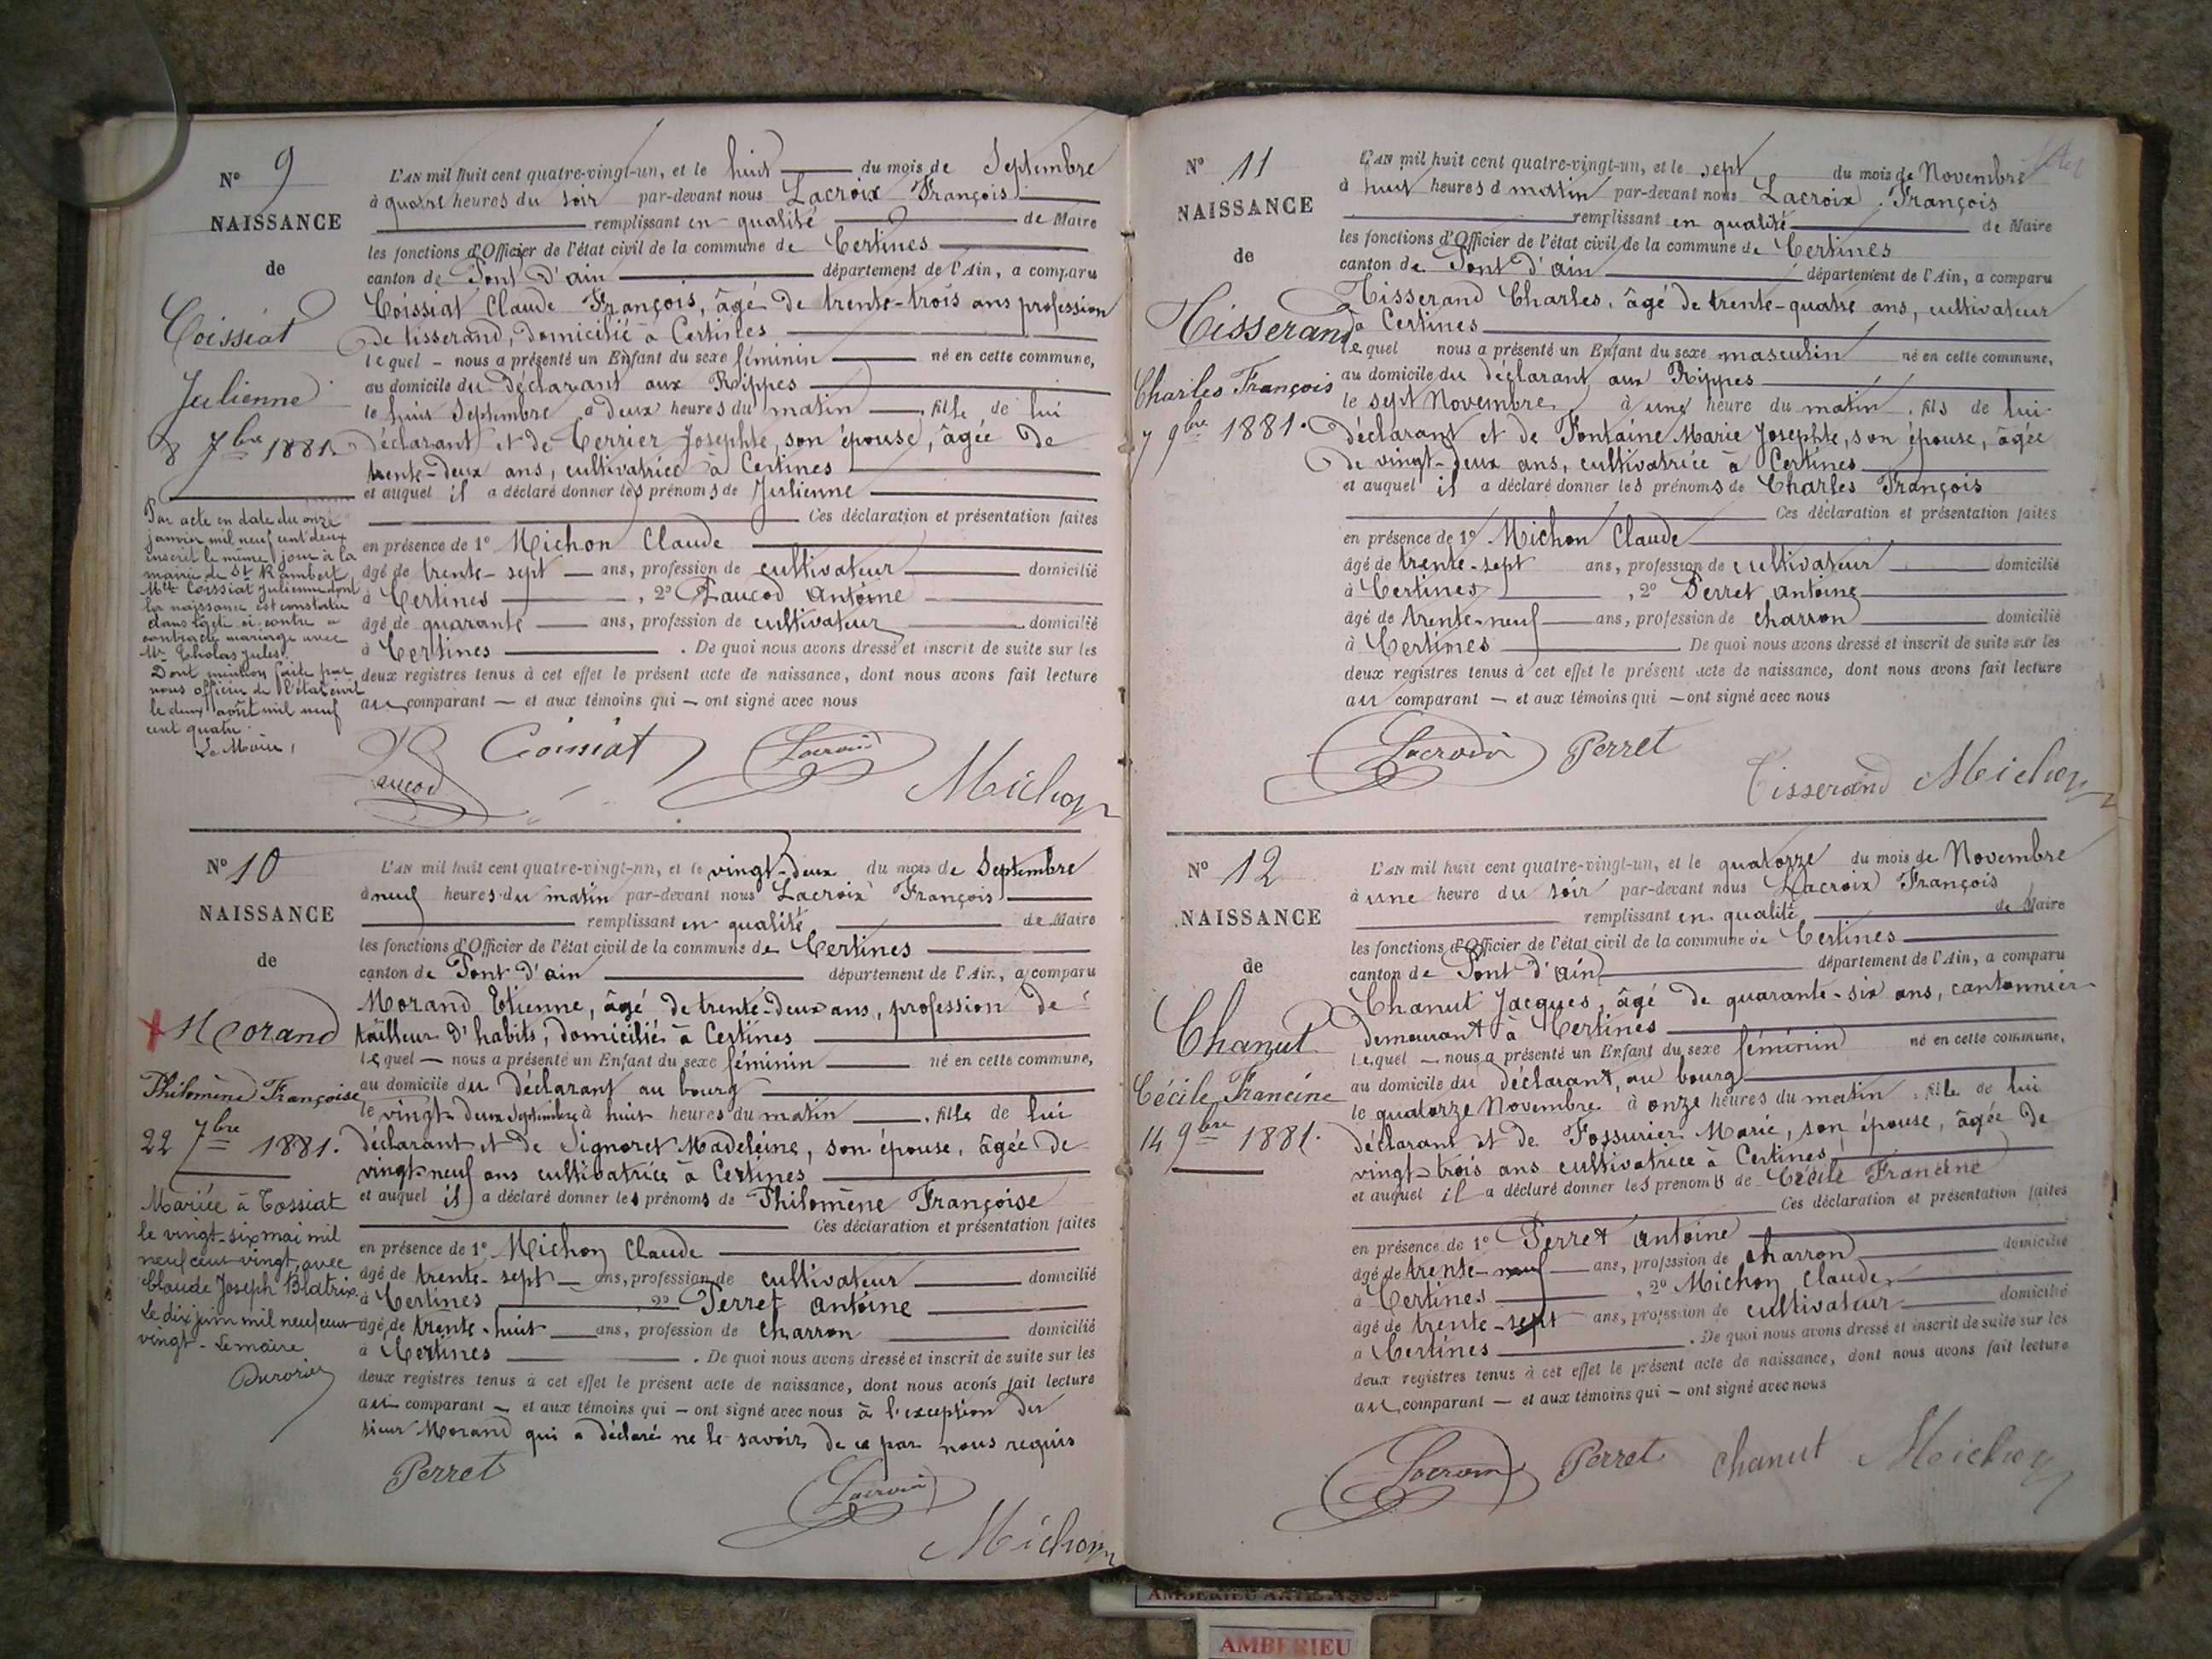 N° 9
NAISSANCE
de
Coissiat
Julienne
8 7bre 1881.
Par acte en date du onze
janvier mil neuf cent deux
inscrit le même jour à la
mairie de St Rambert,
Melle Coissiat Julienne dont
la naissance est constatée
dans l'acte ci-contre a
contracté mariage avec
Mr Tholas Jules.
Dont mention faite par
nous officier de l'état civil
le deux août mil neuf
cent quatre.
Le Maire,
L'AN mil huit cent quatre-vingt-un, et le huit du mois de Septembre
à quatre heures du soir par-devant nous Lacroix François
remplissant en qualité de Maire
les fonctions d'Officier de l'état civil de la commune de Certines
canton de Pont d'ain département de l'Ain, a comparu
Coissiat Claude François, âgé de trente-trois ans profession
de tisserand, domicilié à Certines
lequel nous a présenté un Enfant du sexe féminin né en cette commune,
au domicile du déclarant aux Rippes
le huit Septembre à deux heures du matin, fille de lui
déclarant et de Cerrier Josephte, son épouse, âgée de
trente-deux ans, cultivatrice à Certines
et auquel il a déclaré donner les prénoms de Julienne
Ces déclaration et présentation faites
en présence de 1° Michon Claude
âgé de trente-sept ans, profession de cultivateur domicilié
à Certines, 2° Paucod Antoine
âgé de quarante ans, profession de cultivateur domicilié
à Certines. De quoi nous avons dressé et inscrit de suite sur les
deux registres tenus à cet effet le présent acte de naissance, dont nous avons fait lecture
au comparant — et aux témoins qui — ont signé avec nous
Paucod Coissiat Lacroix Michon
N° 10
NAISSANCE
de
Morand
Philomène Françoise
22 7bre 1881.
Mariée à Tossiat
le vingt-six mai mil
neuf cent vingt, avec
Claude Joseph Blatrix.
Le dix juin mil neuf cent
vingt - Le maire
L'AN mil huit cent quatre-vingt-un, et le vingt-deux du mois de Septembre
à neuf heures du matin par-devant nous Lacroix François
remplissant en qualité de Maire
les fonctions d'Officier de l'état civil de la commune de Certines
canton de Pont d'ain département de l'Ain, a comparu
Morand Etienne, âgé de trente-deux ans, profession de
tailleur d'habits, domicilié à Certines
lequel — nous a présenté un Enfant du sexe féminin né en cette commune,
au domicile du déclarant au bourg
le vingt-deux Septembre à huit heures du matin, fille de lui
déclarant et de Signoret Madeleine, son épouse, âgée de
vingt-neuf ans cultivatrice à Certines
et auquel il a déclaré donner les prénoms de Philomène Françoise
Ces déclaration et présentation faites
en présence de 1° Michon Claude
âgé de trente-sept ans, profession de cultivateur domicilié
à Certines, 2° Perret Antoine
âgé de trente-huit ans, profession de charron domicilié
à Certines. De quoi nous avons dressé et inscrit de suite sur les
deux registres tenus à cet effet le présent acte de naissance, dont nous avons fait lecture
au comparant — et aux témoins qui — ont signé avec nous à l'exception du
sieur Morand qui a déclaré ne le savoir de ce par nous requis
Perret Lacroix
Michon
N° 11
NAISSANCE
de
Tisserand
Charles François
7 9bre 1881.
L'AN mil huit cent quatre-vingt-un, et le sept du mois de Novembre
à huit heures d matin par-devant nous Lacroix François
remplissant en qualité de Maire
les fonctions d'Officier de l'état civil de la commune de Certines
canton de Pont d'ain département de l'Ain, a comparu
Tisserand Charles, âgé de trente-quatre ans, cultivateur
à Certines
lequel nous a présenté un Enfant du sexe masculin né en cette commune,
au domicile du déclarant aux Rippes
le sept Novembre à une heure du matin, fils de lui
déclarant et de Fontaine Marie Josephte, son épouse, âgée
de vingt-deux ans, cultivatrice à Certines
et auquel il a déclaré donner les prénoms de Charles François
Ces déclaration et présentation faites
en présence de 1° Michon Claude
âgé de trente-sept ans, profession de cultivateur domicilié
à Certines, 2° Perret Antoine
âgé de trente-neuf ans, profession de charron domicilié
à Certines De quoi nous avons dressé et inscrit de suite sur les
deux registres tenus à cet effet le présent acte de naissance, dont nous avons fait lecture
au comparant — et aux témoins qui — ont signé avec nous
Lacroix Perret Tisserand Michon
N° 12
NAISSANCE
de
Chanut
Cécile Francine
14 9bre 1881.
L'AN mil huit cent quatre-vingt-un, et le quatorze du mois de Novembre
à une heure du soir par-devant nous Lacroix François
remplissant en qualité de Maire
les fonctions d'Officier de l'état civil de la commune de Certines
canton de Pont d'ain département de l'Ain, a comparu
Chanut Jacques, âgé de quarante-six ans, cantonnier
demeurant à Certines
lequel — nous a présenté un Enfant du sexe féminin né en cette commune,
au domicile du déclarant, au bourg
le quatorze Novembre à onze heures du matin, fille de lui
déclarant et de Fossurier Marie, son épouse, âgée de
vingt-trois ans cultivatrice à Certines
et auquel il a déclaré donner les prénoms de Cécile Francine
Ces déclaration et présentation faites
en présence de 1° Perret Antoine
âgé de trente-neuf ans, profession de charron domicilié
à Certines, 2° Michon Claude
âgé de trente-sept ans, profession de cultivateur domicilié
à Certines. De quoi nous avons dressé et inscrit de suite sur les
deux registres tenus à cet effet le présent acte de naissance, dont nous avons fait lecture
au comparant — et aux témoins qui — ont signé avec nous
Lacroix Perret Chanut Michon
AMBERIEU